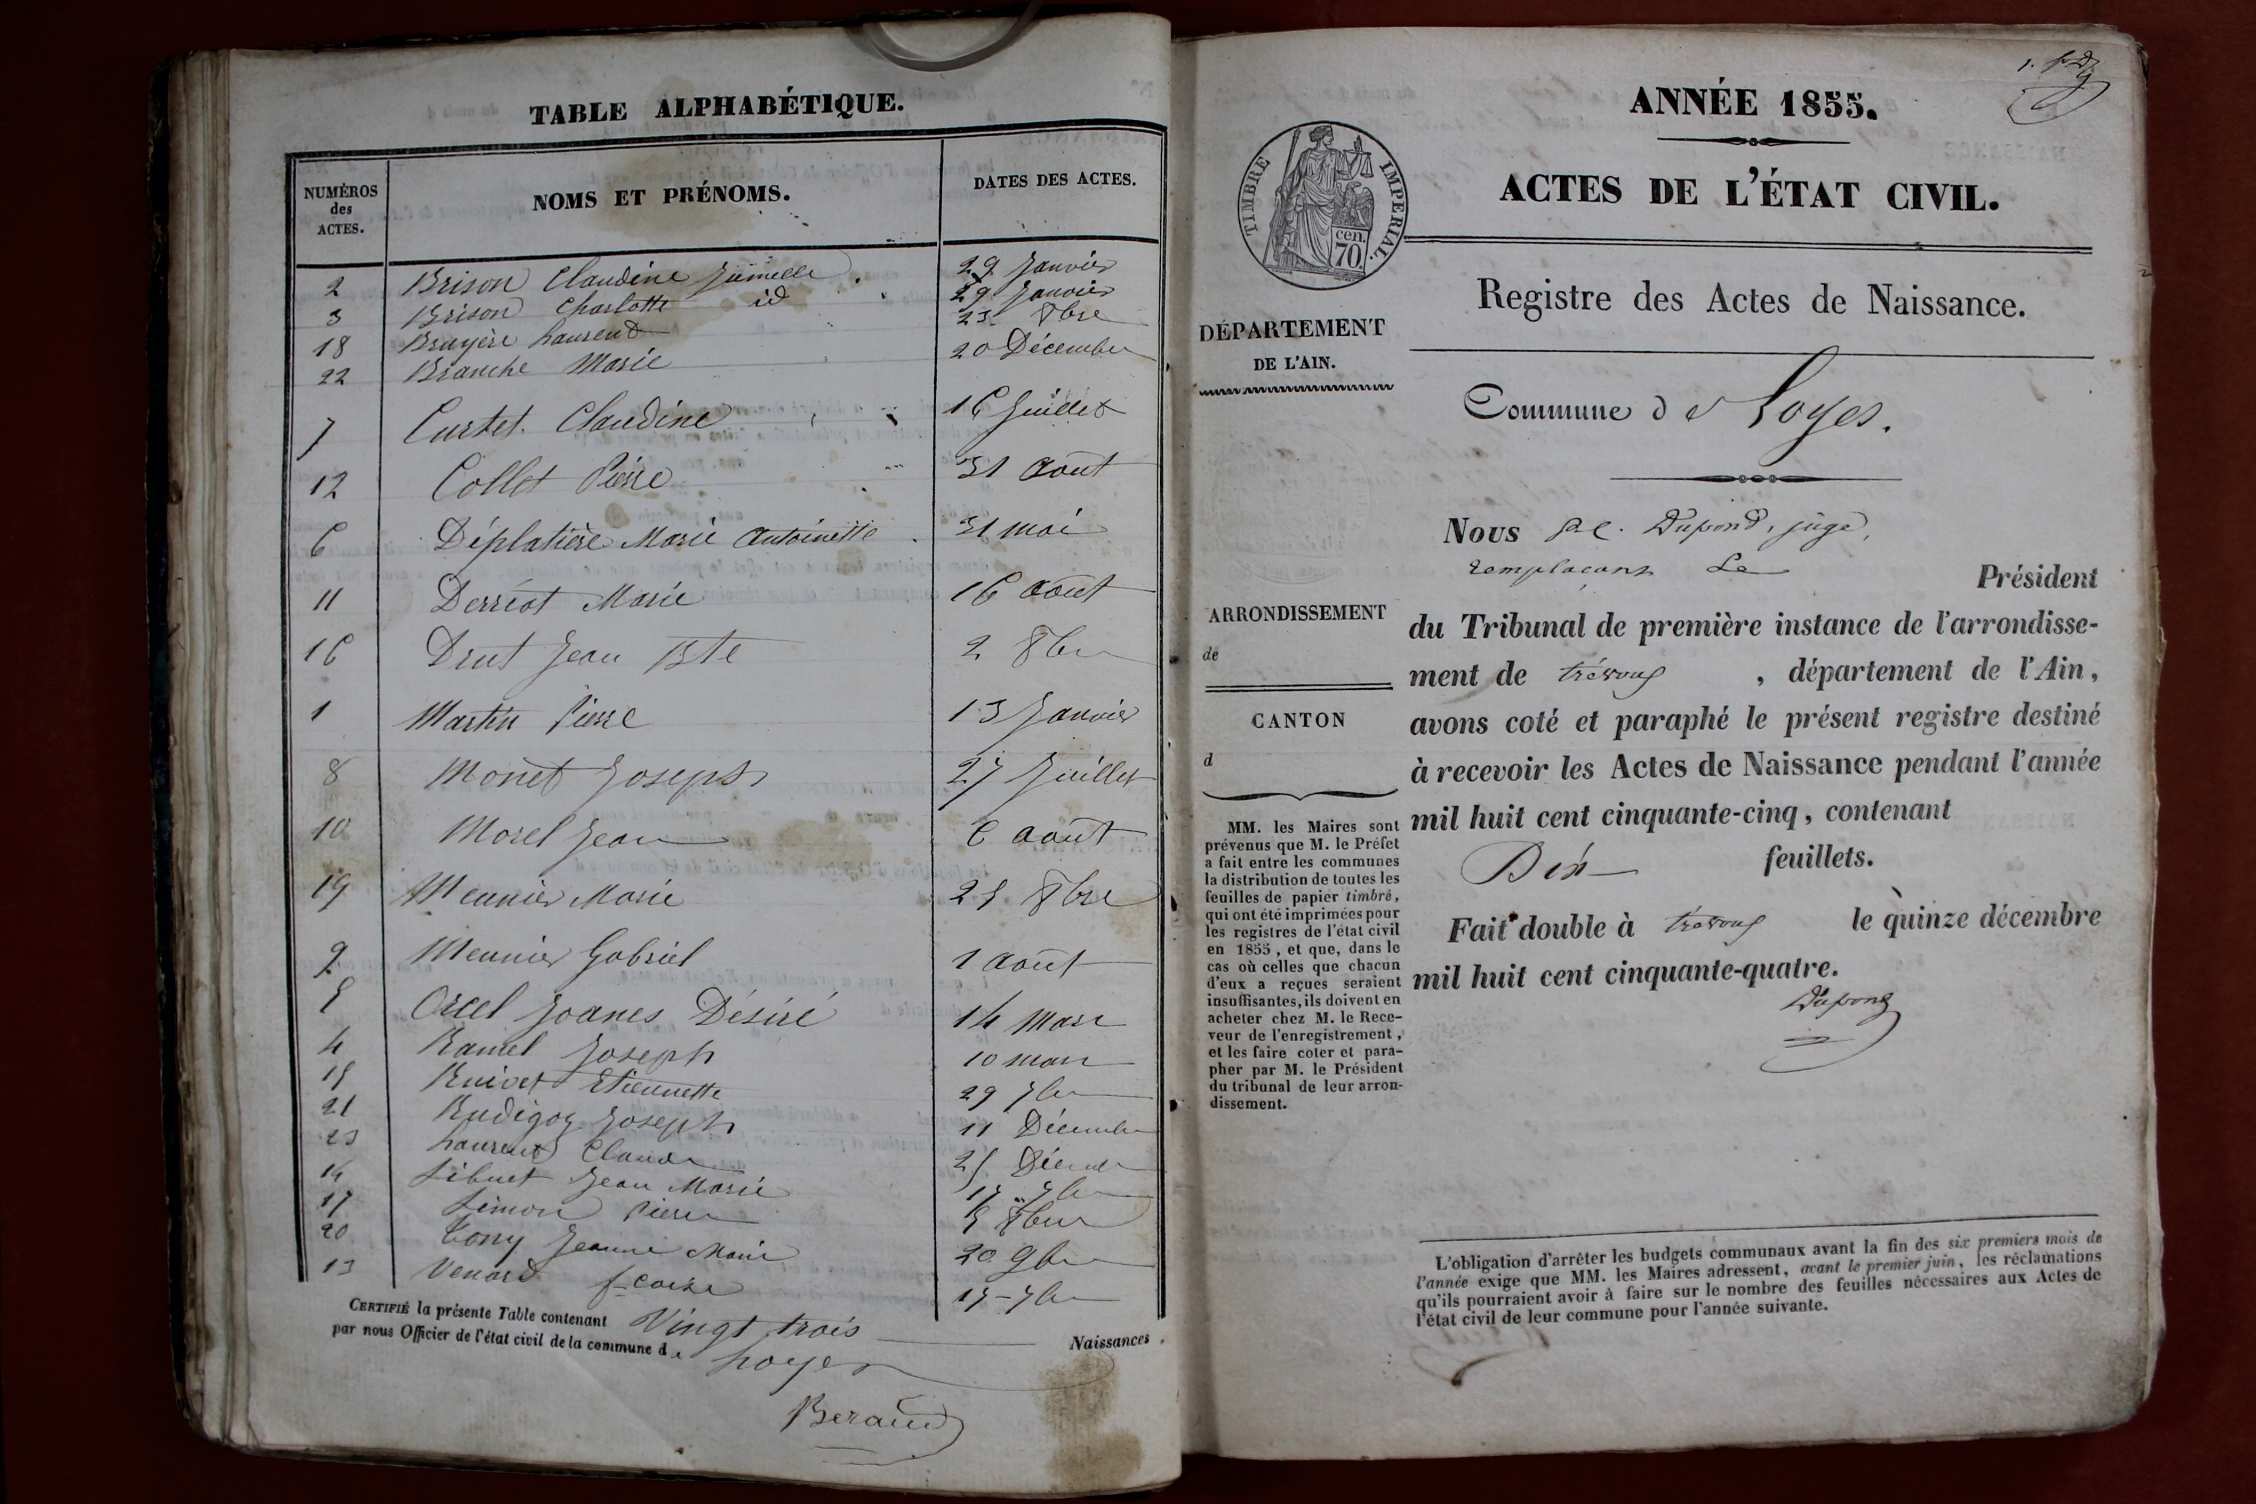 TABLE ALPHABÉTIQUE.
NUMÉROS
des
ACTES.
NOMS ET PRÉNOMS.
DATES DES ACTES.
2 Brison Claudine Jumelle 29 Janvier
3 Brison Charlotte id 29 Janvier
18 Bruyère Laurent 23 8bre
22 Branche Marie 20 Décembre
7 Curtet Claudine 16 Juillet
12 Collet Pierre 31 Août
6 Déplatière Marie Antoinette 31 mai
11 Derriot Marie 16 Août
16 Drut Jean Bte 2 8bre
1 Martin Pierre 13 Janvier
8 Monet Joseph 27 Juillet
10 Morel Jean 6 Août
19 Meunier Marie 25 8bre
9 Meunier Gabriel 1 Août
5 Orcel Joanes Désiré 14 Mars
4 Ramel Joseph 10 mars
15 Rnivet Etiennette 29 7bre
21 Rudigoz Joseph 11 Décembre
23 Laurent Claude 25 Décembre
14 Sibuet Jean Marie 17 7bre
17 Simon Pierre 5 8bre
20 Tony Jeanne Marie 20 9bre
13 Venard fcoise 15 7bre
CERTIFIÉ la présente Table contenant Vingt trois Naissances,
par nous Officier de l'état civil de la commune de Loyes
Beraud
1.
ANNÉE 1855.
ACTES DE L'ÉTAT CIVIL.
TIMBRE IMPERIAL.
cen.
70
Registre des Actes de Naissance.
DÉPARTEMENT
DE L'AIN.
Commune de Loyes.
Nous Dupond, juge,
remplaçant Le Président
du Tribunal de première instance de l'arrondisse-
ment de trévoux, département de l'Ain,
avons coté et paraphé le présent registre destiné
à recevoir les Actes de Naissance pendant l'année
mil huit cent cinquante-cinq, contenant
Dix feuillets.
Fait double à trévoux le quinze décembre
mil huit cent cinquante-quatre.
Dupond
ARRONDISSEMENT
de
CANTON
d
MM. les Maires sont
prévenus que M. le Préfet
a fait entre les communes
la distribution de toutes les
feuilles de papier timbré,
qui ont été imprimées pour
les registres de l'état civil
en 1855, et que, dans le
cas où celles que chacun
d'eux a reçues seraient
insuffisantes, ils doivent en
acheter chez M. le Rece-
veur de l'enregistrement,
et les faire coter et para-
pher par M. le Président
du tribunal de leur arron-
dissement.
L'obligation d'arrêter les budgets communaux avant la fin des six premiers mois de
l'année exige que MM. les Maires adressent, avant le premier juin, les réclamations
qu'ils pourraient avoir à faire sur le nombre des feuilles nécessaires aux Actes de
l'état civil de leur commune pour l'année suivante.